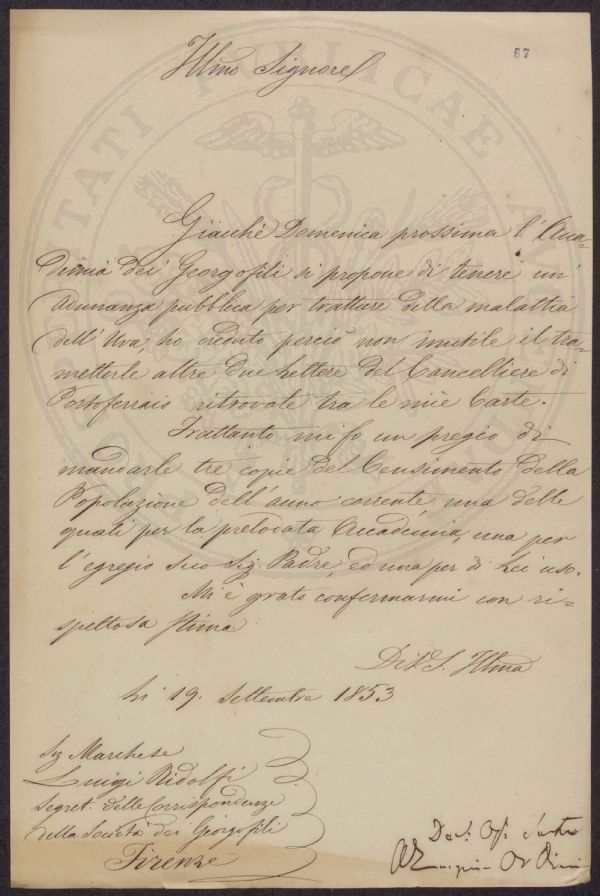 67
Illmo Signore
Giacchè Domenica prossima l'Acca-
demia dei Georgofili si propone di tenere un'
adunanza pubblica per trattare della malattia
dell'Uva, ho creduto perciò non inutile il tra-
metterle altre due Lettere del Cancelliere di
Portoferraio ritrovate tra le mie Carte.
Frattanto mi fo un pregio di
mandarle tre copie del Censimento della
Popolazione dell'anno corrente una delle
quali per la prelodata Accademia, una per
l'egregio suo Sig. Padre, ed una per di Lei uso.
Mi è grato confermarmi con ri=
spettosa stima
Di V. S. Illma
Li 19. Settembre 1853
Sig Marchese
Luigi Ridolfi
Segret. delle Corrispondenze
della Società dei Georgofili
Firenze